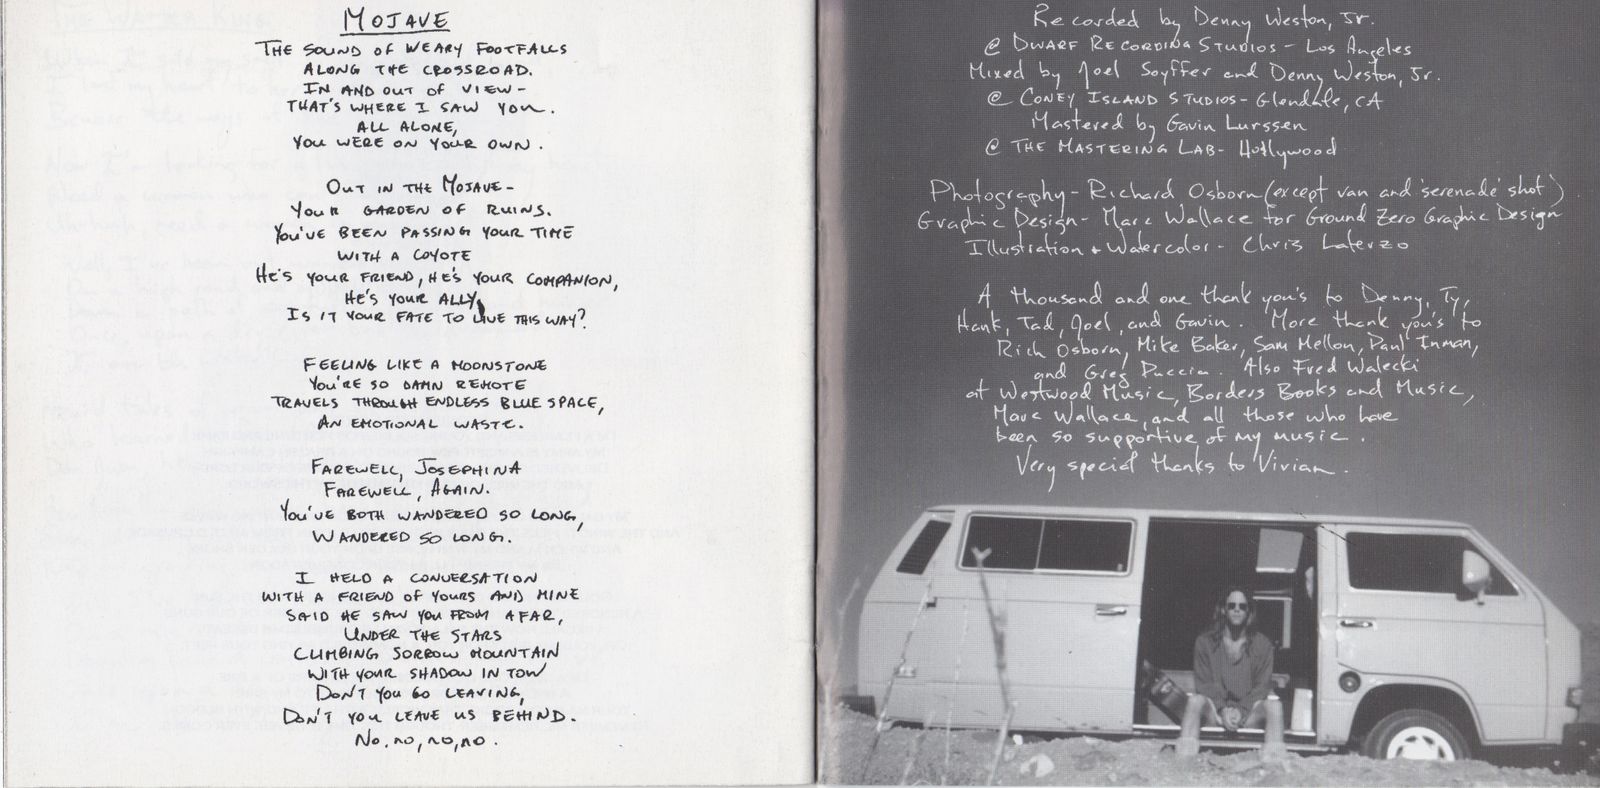 MOJAVE
THE SOUND OF WEARY FOOTFALLS
ALONG THE CROSSROAD.
IN AND OUT OF VIEW-
THAT'S WHERE I SAW YOU.
ALL ALONE,
YOU WERE ON YOUR OWN.
OUT IN THE MOJAVE-
YOUR GARDEN OF RUINS.
YOU'VE BEEN PASSING YOUR TIME
WITH A COYOTE
HE'S YOUR FRIEND, HE'S YOUR COMPANION,
HE'S YOUR ALLY,
IS IT YOUR FATE TO LIVE THIS WAY?
FEELING LIKE A MOONSTONE
YOU'RE SO DAMN REMOTE
TRAVELS THROUGH ENDLESS BLUE SPACE,
AN EMOTIONAL WASTE.
FAREWELL, JOSEPHINA
FAREWELL, AGAIN.
YOU'VE BOTH WANDERED SO LONG,
WANDERED SO LONG.
I HELD A CONVERSATION
WITH A FRIEND OF YOURS AND MINE
SAID HE SAW YOU FROM AFAR,
UNDER THE STARS
CLIMBING SORROW MOUNTAIN
WITH YOUR SHADOW IN TOW
DON'T YOU GO LEAVING,
DON'T YOU LEAVE US BEHIND.
NO, NO, NO, NO.
Recorded by Denny Weston, Jr.
@ DWARF RECORDING STUDIOS - Los Angeles
Mixed by Joel Soyffer and Denny Weston, Jr.
@ CONEY ISLAND STUDIOS- Glendale, CA
Mastered by Gavin Lurssen
@ THE MASTERING LAB- Hollywood
Photography- Richard Osborn (except van and 'serenade' shot)
Graphic Design- Marc Wallace for Ground Zero Graphic Design
Illustration + Watercolor - Chris Laterzo
A thousand and one thank you's to Denny, Ty,
Hank, Tad, Joel, and Gavin. More thank you's to
Rich Osborn, Mike Baker, Sam Mellon, Paul Inman,
and Greg Puccia. Also Fred Walecki
at Westwood Music, Borders Books and Music,
Marc Wallace, and all those who have
been so supportive of my music.
Very special thanks to Vivian.